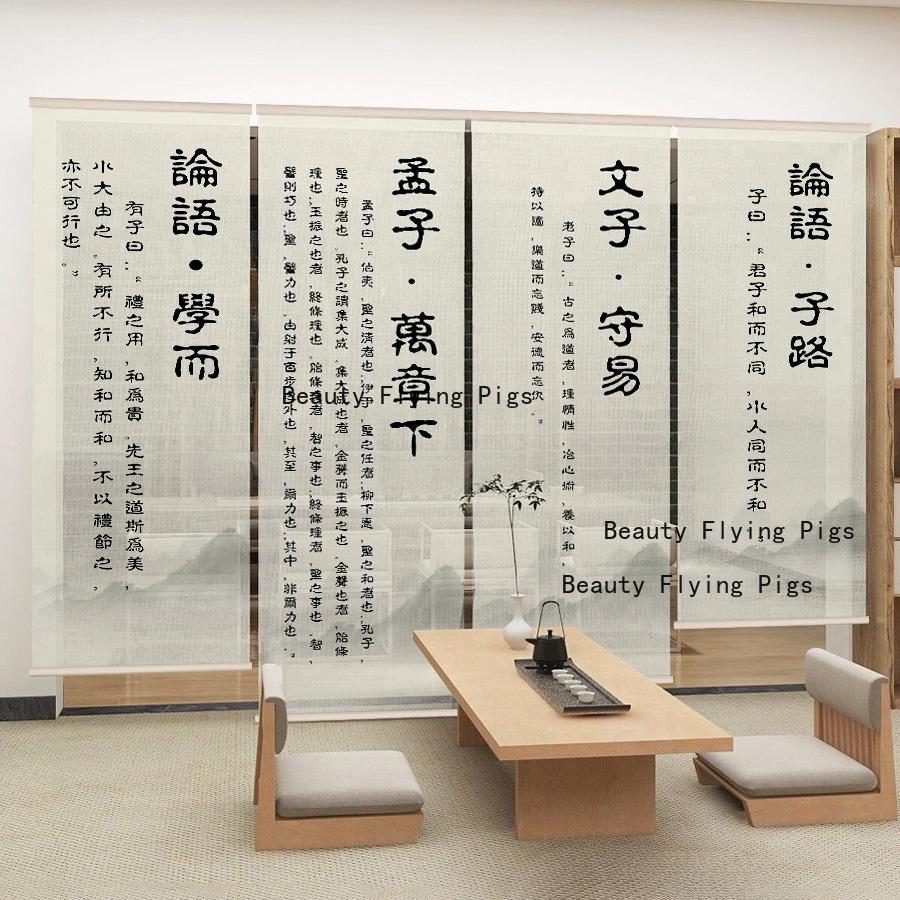 論語·子路
子曰:“君子和而不同,小人同而不和。”
文子·守易
老子曰:“古之爲道者,理情性,冶心術,養以和,
持以適,樂道而忘賤,安德而忘
孟子·萬章下
孟子曰:“夷,聖之清者也;伊尹,聖之任者;柳下惠,聖之和者也;孔子,
聖之時者也。孔子之謂集大成。集大成也者,金聲而玉振之也。金聲也者,條
理也;玉振之也者,終條理也。條理者,智之事也;終條理者,聖之事也。智,
譬則巧也;聖,譬力也。由射于百步之外也,其至,爾力也;其中,非爾力也。”
論語·學而
有子曰:“禮之用,和爲貴。先王之道斯爲美,
小大由之。有所不行,知和而和,不以禮節之,
亦不可行也。”
Beauty Flying Pigs
Beauty Flying Pigs
Beauty Flying Pigs